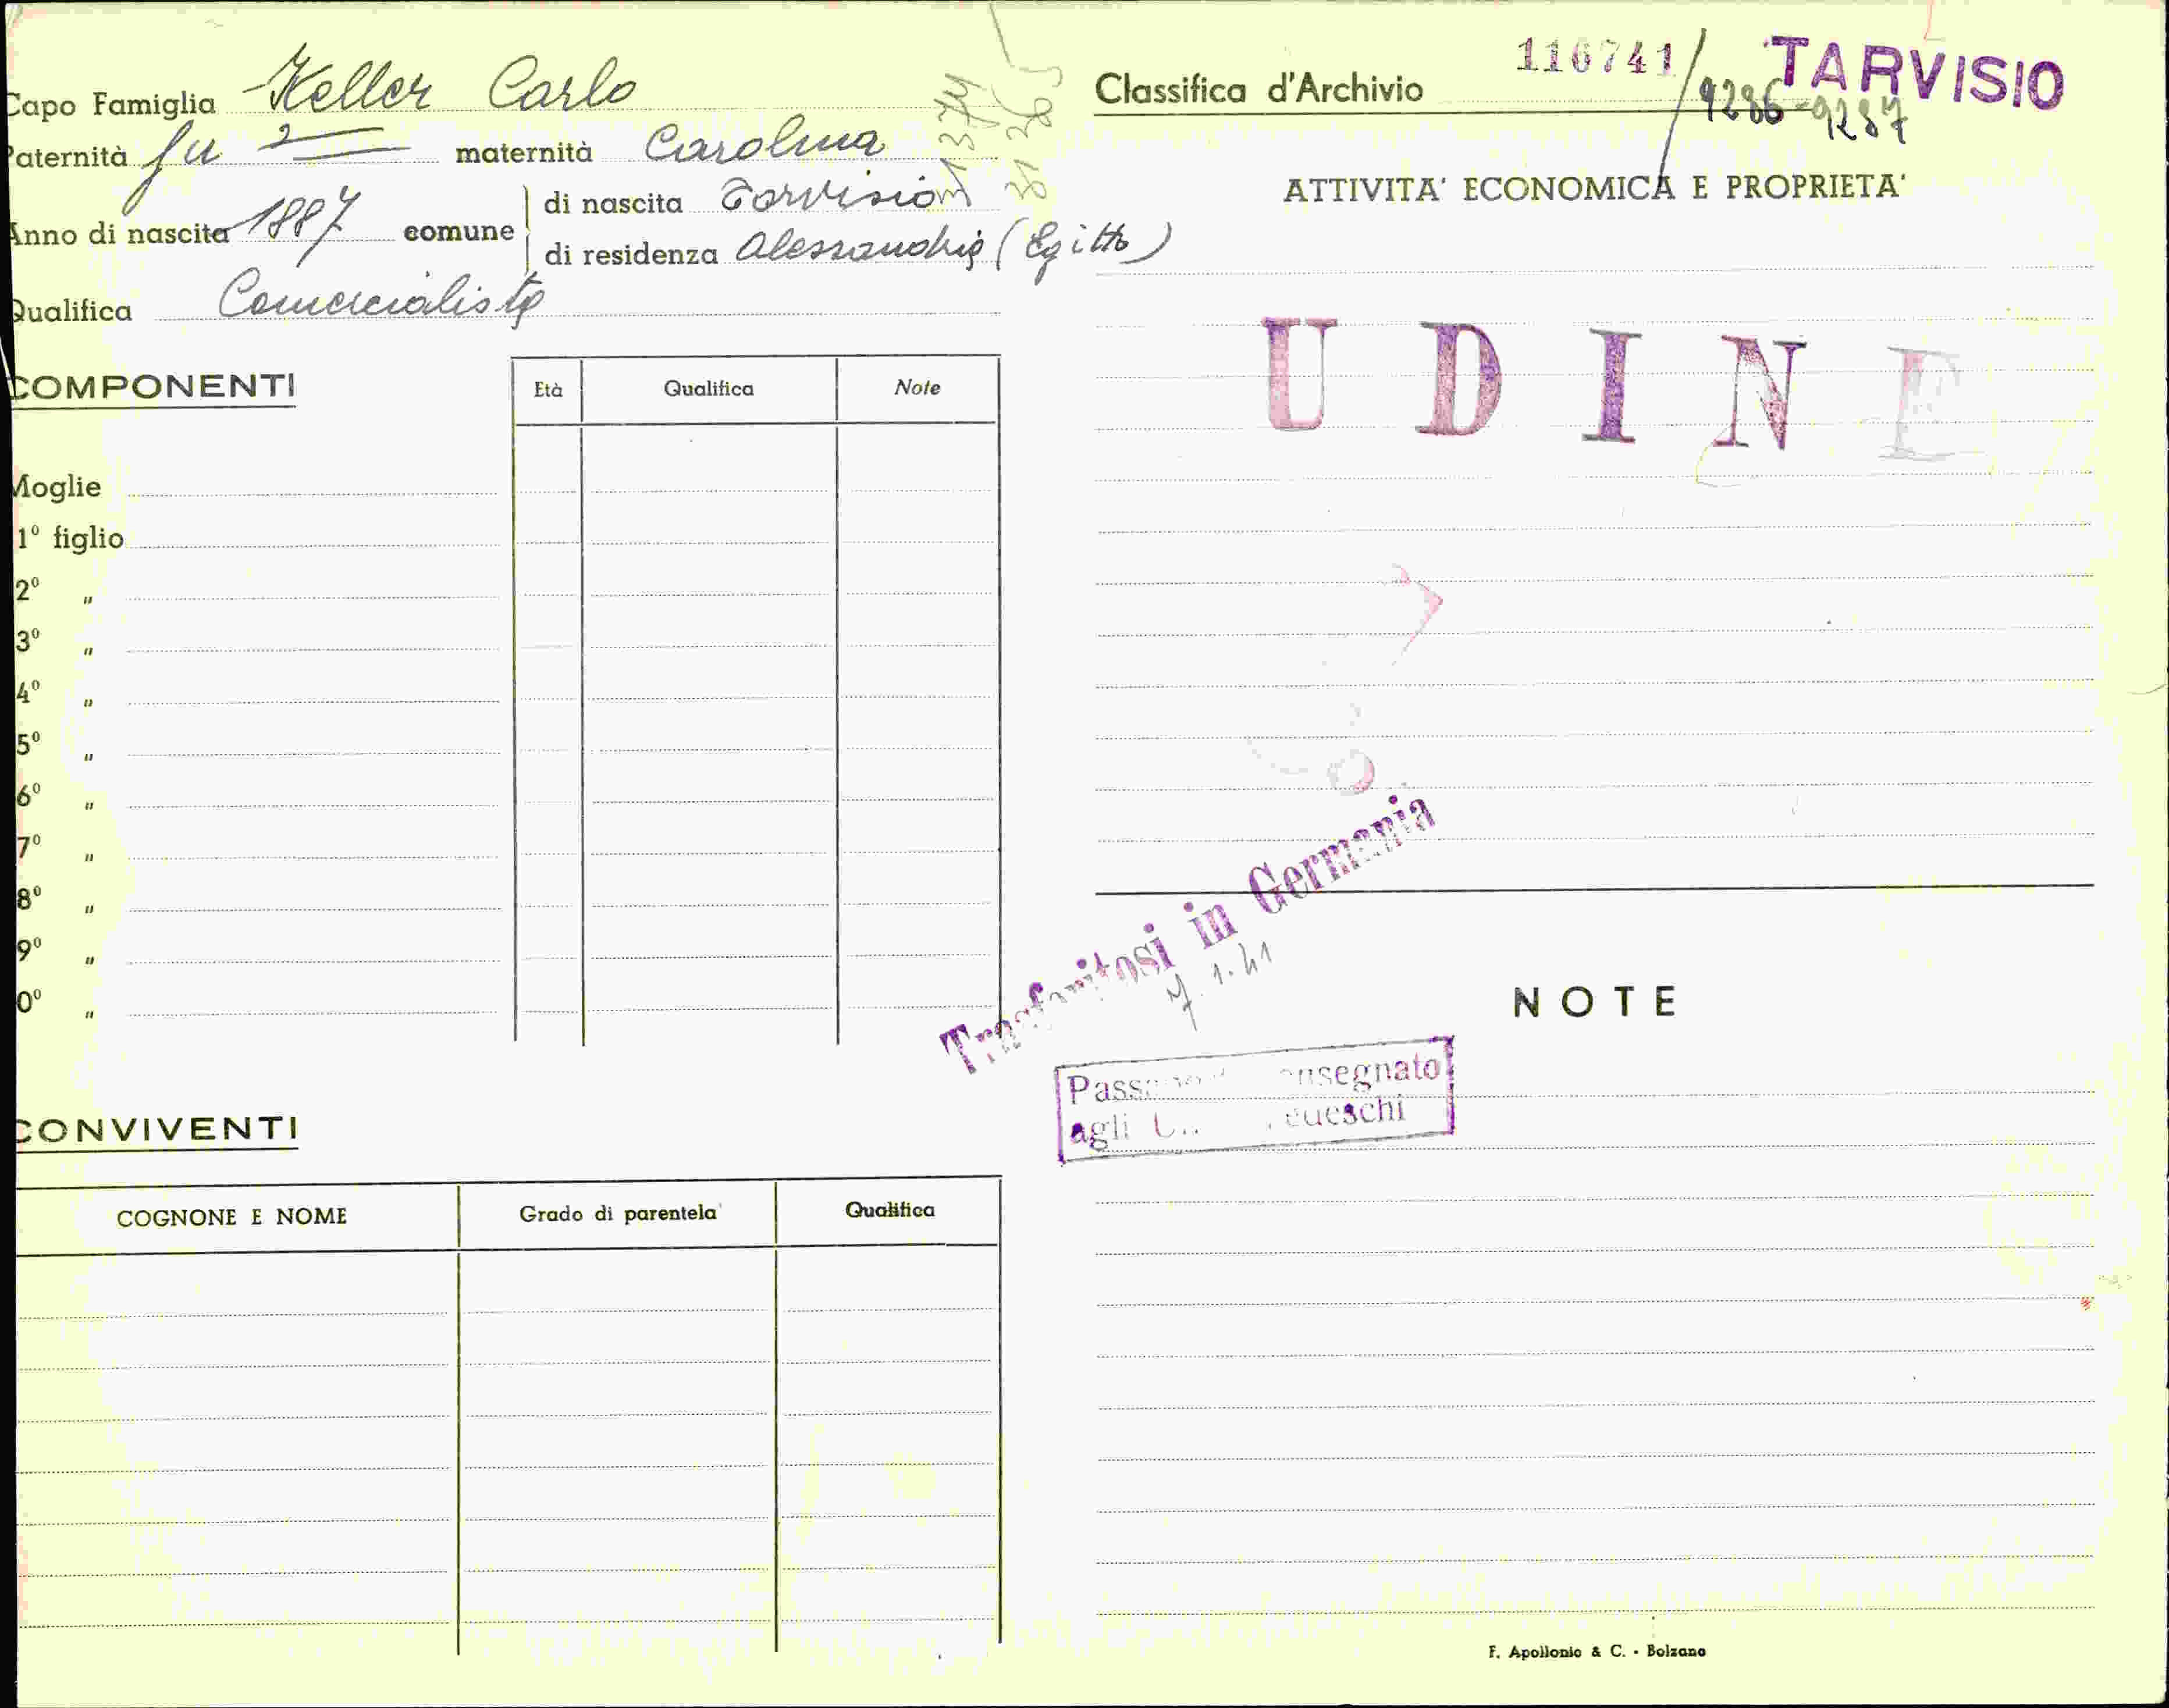 Capo Famiglia Keller Carlo
Paternità fu maternità Carolina
Anno di nascita 1887 comune di nascita Tarvisio
di residenza Alessandria (Egitto)
Qualifica Comercialista
COMPONENTI
Età Qualifica Note
Moglie
1º figlio
2º "
3º "
4º "
5º "
6º "
7º "
8º "
9º "
0º "
CONVIVENTI
COGNONE E NOME Grado di parentela Qualifica
Classifica d'Archivio 116741/ TARVISIO
9286-9287
ATTIVITA' ECONOMICA E PROPRIETA'
UDINE
Trasferitosi in Germania
7.1.41
NOTE
consegnato
agli tedeschi
F. Apollonio & C. - Bolzano